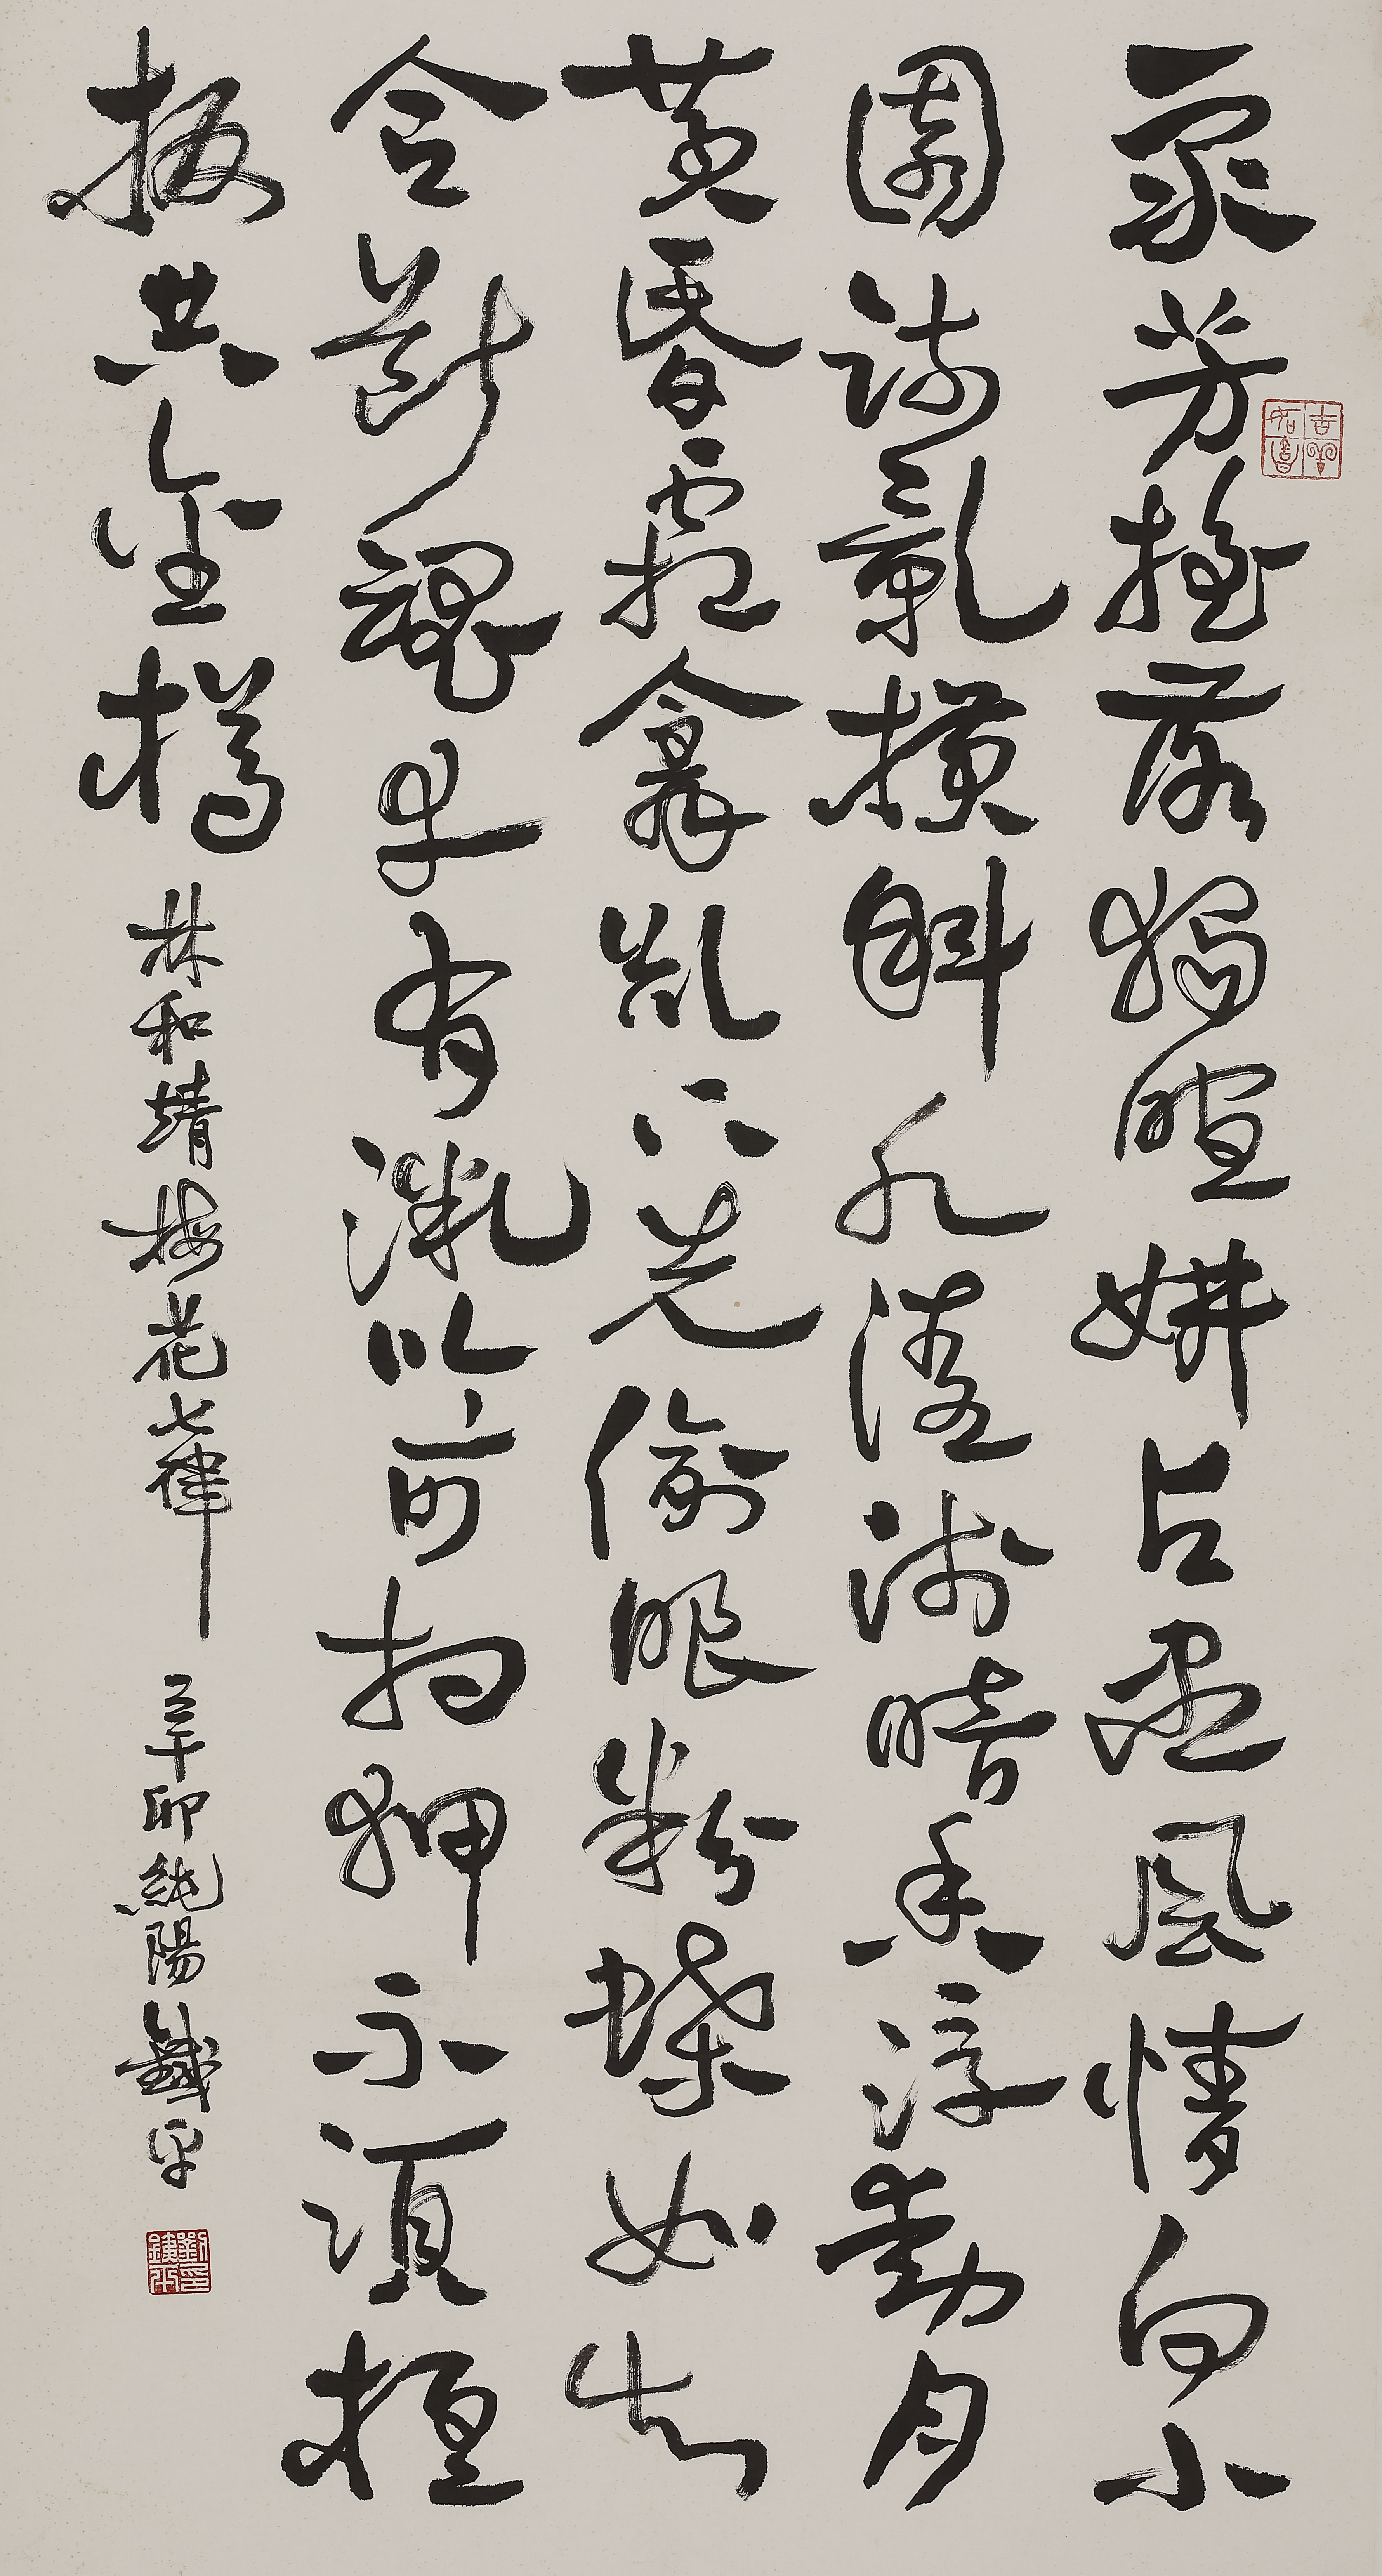 眾芳搖落獨暄妍占盡風情向小
園疏影橫斜水清淺暗香浮動月
黃昏霜禽欲下先偷眼粉蝶如知
合斷魂幸有微吟可相狎不須檀
板共金樽 林和靖梅花七律 辛卯純陽鐵平
劉印鐵平